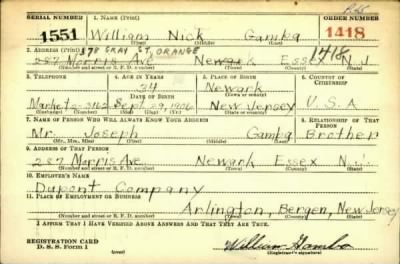 SERIAL NUMBER 1. NAME (Print) ORDER NUMBER
1551 William Nick Gamba 1418
(First) (Middle) (Last)
2. ADDRESS (Print) 378 GRAY ST. ORANGE 1418
287 Morris Ave Newark Essex N.J.
(Number and street or R. F. D. number) (Town) (County) (State)
3. TELEPHONE 4. AGE IN YEARS 5. PLACE OF BIRTH 6. COUNTRY OF CITIZENSHIP
34 Newark
DATE OF BIRTH (Town or county)
Market 2-3162 Sept. 29, 1906 New Jersey U.S.A
(Exchange) (Number) (Mo.) (Day) (Yr.) (State or country)
7. NAME OF PERSON WHO WILL ALWAYS KNOW YOUR ADDRESS 8. RELATIONSHIP OF THAT PERSON
Mr. Joseph Gamba Brother
(Mr., Mrs., Miss) (First) (Middle) (Last)
9. ADDRESS OF THAT PERSON
287 Morris Ave. Newark Essex N.J.
(Number and street or R. F. D. number) (Town) (County) (State)
10. EMPLOYER'S NAME
Dupont Company
11. PLACE OF EMPLOYMENT OR BUSINESS
Arlington, Bergen, New Jersey
(Number and street or R. F. D. number) (Town) (County) (State)
I AFFIRM THAT I HAVE VERIFIED ABOVE ANSWERS AND THAT THEY ARE TRUE.
REGISTRATION CARD
D. S. S. Form 1 (over) William Gamba
(Registrant's signature)